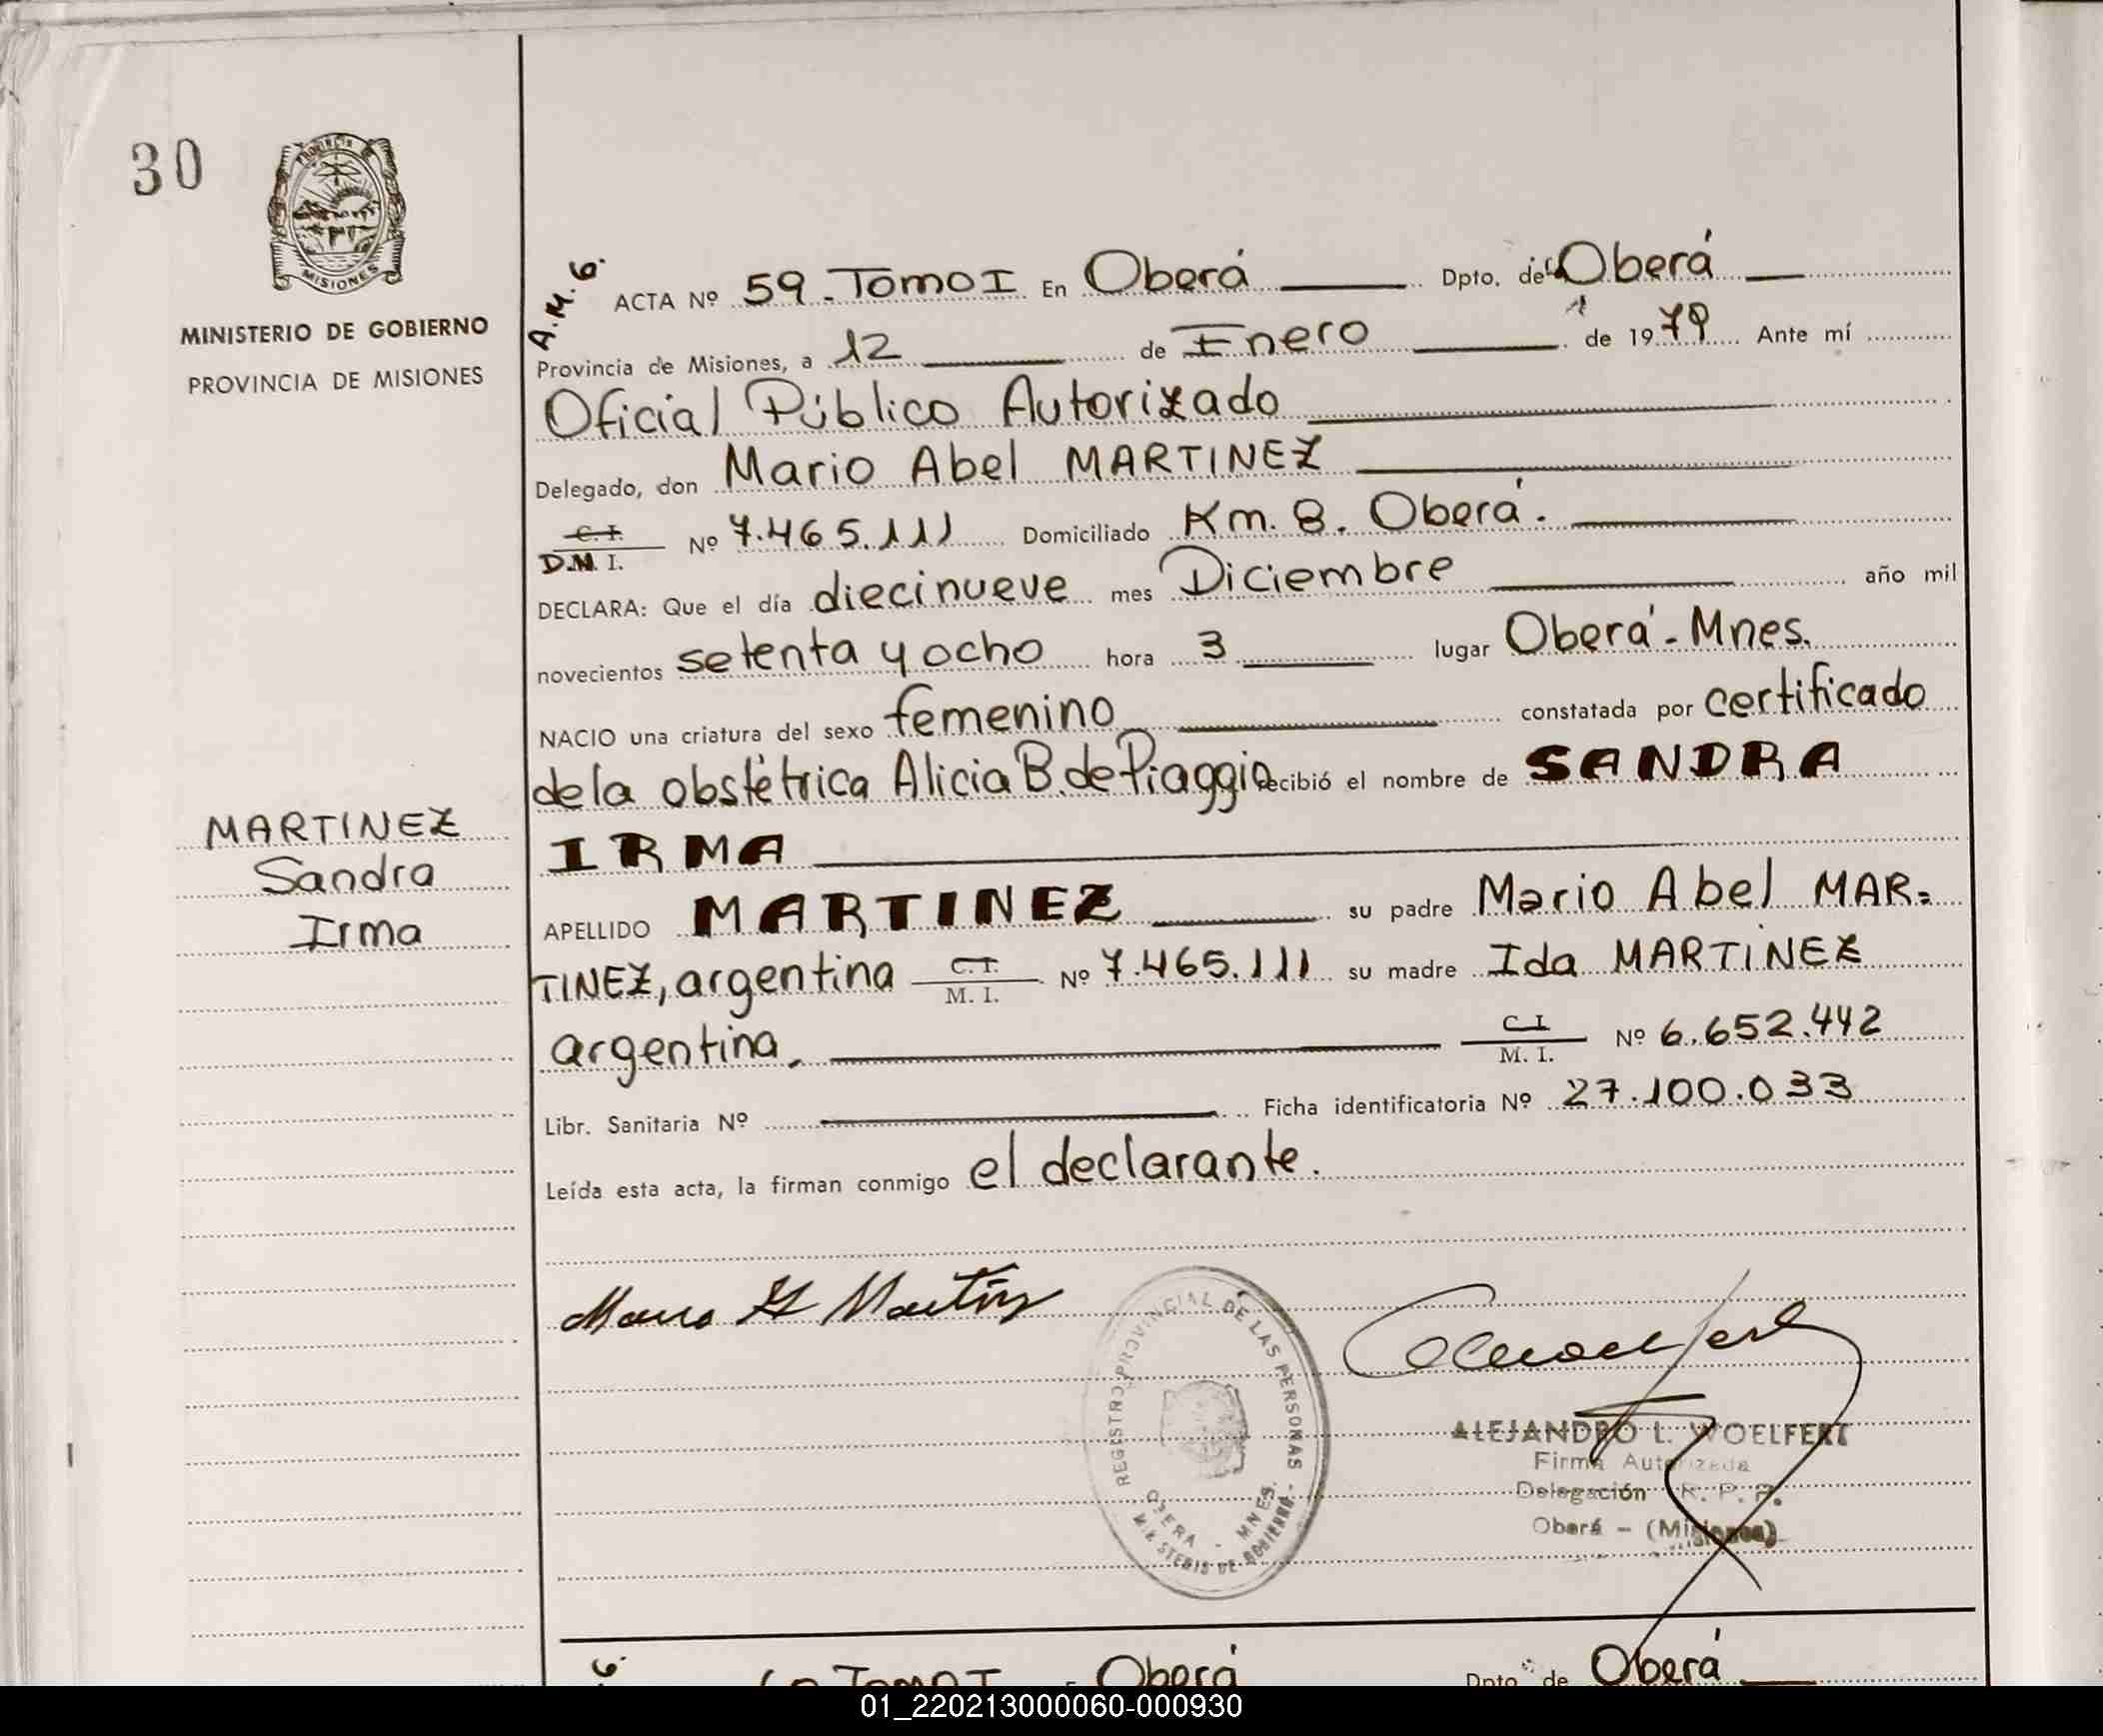 30
PROVINCIA DE
MISIONES
MINISTERIO DE GOBIERNO
PROVINCIA DE MISIONES
MARTINEZ
Sandra
Irma
A.M.G.
ACTA Nº 59.Tomo I En Oberá Dpto. de Oberá
Provincia de Misiones, a 12 de Enero de 1979 Ante mí
Oficial Público Autorizado
Delegado, don Mario Abel MARTINEZ
C.I. D.N.I. Nº 7.465.111 Domiciliado Km. 8. Oberá.
DECLARA: Que el día diecinueve mes Diciembre año mil
novecientos setenta y ocho hora 3 lugar Oberá - Mnes.
NACIO una criatura del sexo femenino constatada por certificado
de la obstétrica Alicia B. de Piaggio recibió el nombre de SANDRA
IRMA
APELLIDO MARTINEZ su padre Mario Abel MAR=
TINEZ, argentina C.I. M.I. Nº 7.465.111 su madre Ida MARTINEZ
argentina. C.I. M.I. Nº 6.652.442
Libr. Sanitaria Nº Ficha identificatoria Nº 27.100.033
Leída esta acta, la firman conmigo el declarante.
REGISTRO PROVINCIAL DE LAS PERSONAS
OBERA - MNES.
ALEJANDRO L. WOELFERT
Firma Autorizada
Delegación R. P. P.
Oberá - (Misiones)
Tomo I Oberá Dpto de Oberá
01_220213000060-000930